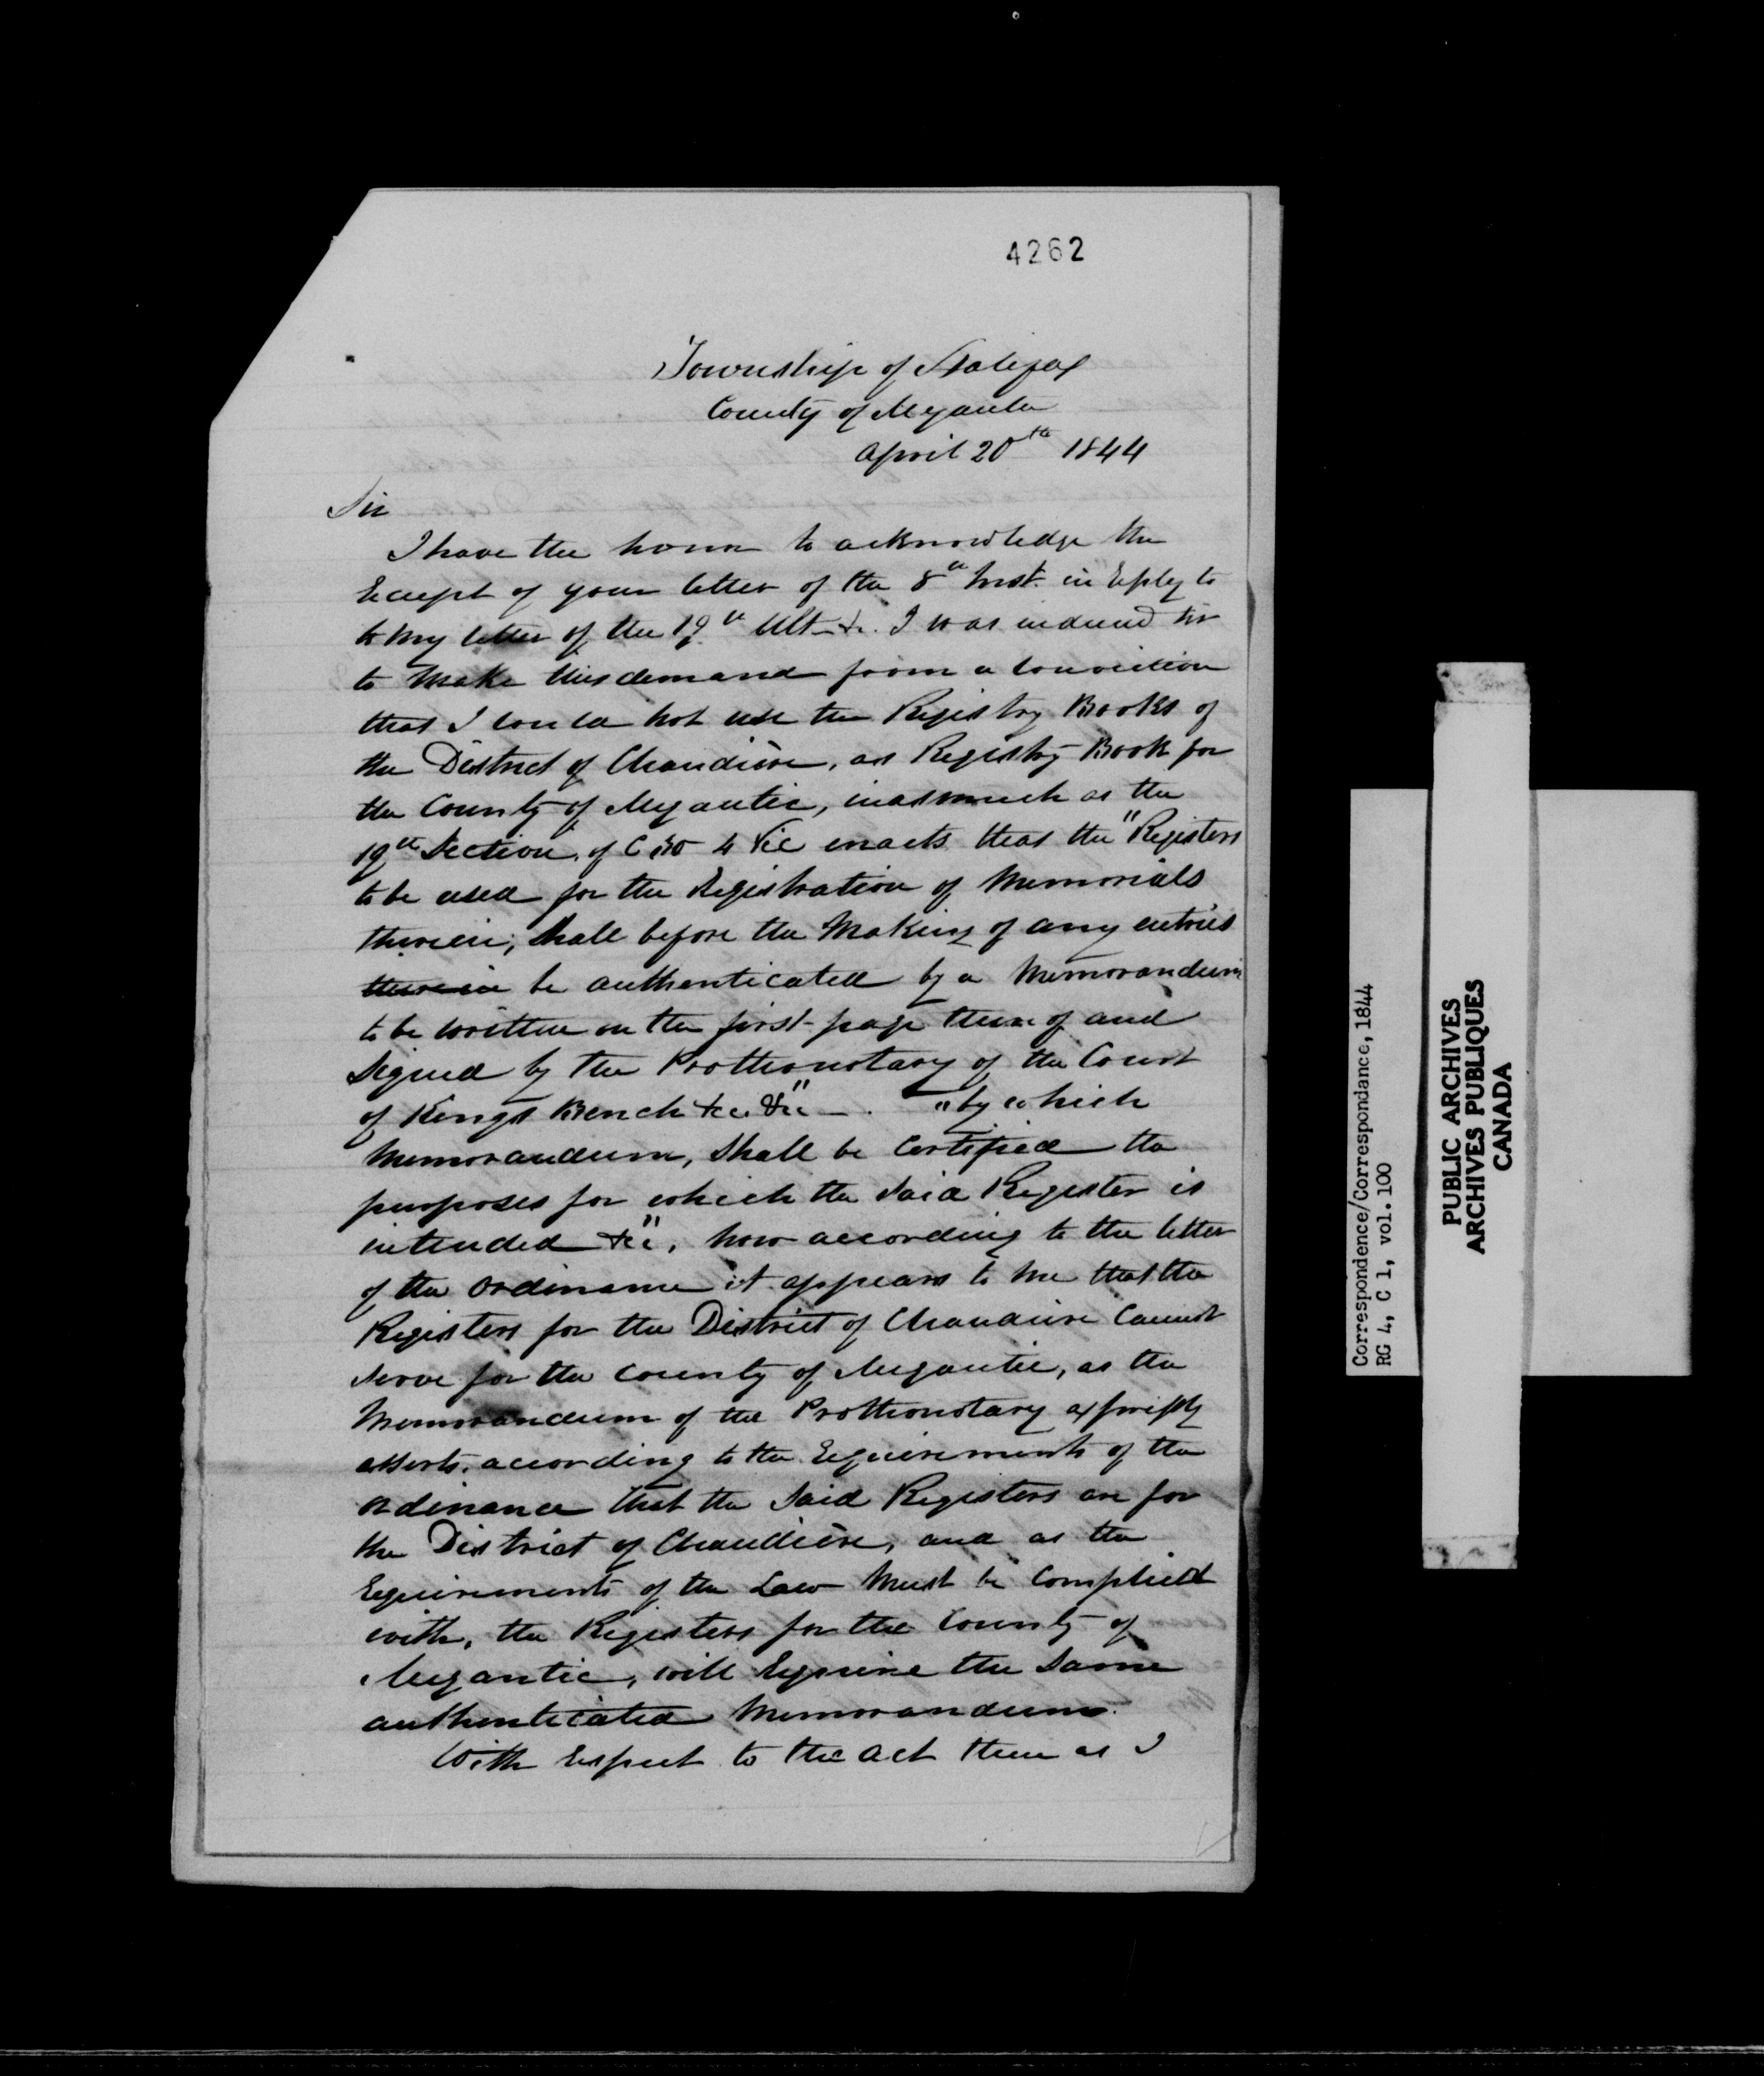 4262
Township of Halifax
County of Megantic
April 20th 1844
Sir
I have the honor to acknowledge the
Receipt of your letter of the 8th Inst. in Reply to
to my letter of the 19th Ult &c. I was induced Sir
to make this demand from a conviction
that I could not use the Registry Books of
the District of Chaudière, as Registry Book for
the County of Megantic, inasmuch as the
19th Section of C 30 4 Vic enacts that the "Registers
to be used for the Registration of Memorials
therein, shall before the making of any entries
therein be authenticated by a Memorandum
to be written on the first page thereof and
Signed by the Prothonotary of the Court
of Kings Bench &c. &c" — . "by which
Memorandum, shall be Certified the
purposes for which the said Register is
intended &c", now according to the letter
of the Ordinance it appears to me that the
Registers for the District of Chaudière Cannot
serve for the County of Megantic, as the
Memorandum of the Prothonotary expressly
asserts, according to the Requirements of the
Ordinance that the said Registers are for
the District of Chaudière, and as the
Requirements of the Law Must be Complied
with, the Registers for the County of
Megantic, will Require the same
authenticated Memorandum.
With Respect to the Act then as I
Correspondence/Correspondance, 1844
RG 4, C 1, vol. 100
PUBLIC ARCHIVES
ARCHIVES PUBLIQUES
CANADA